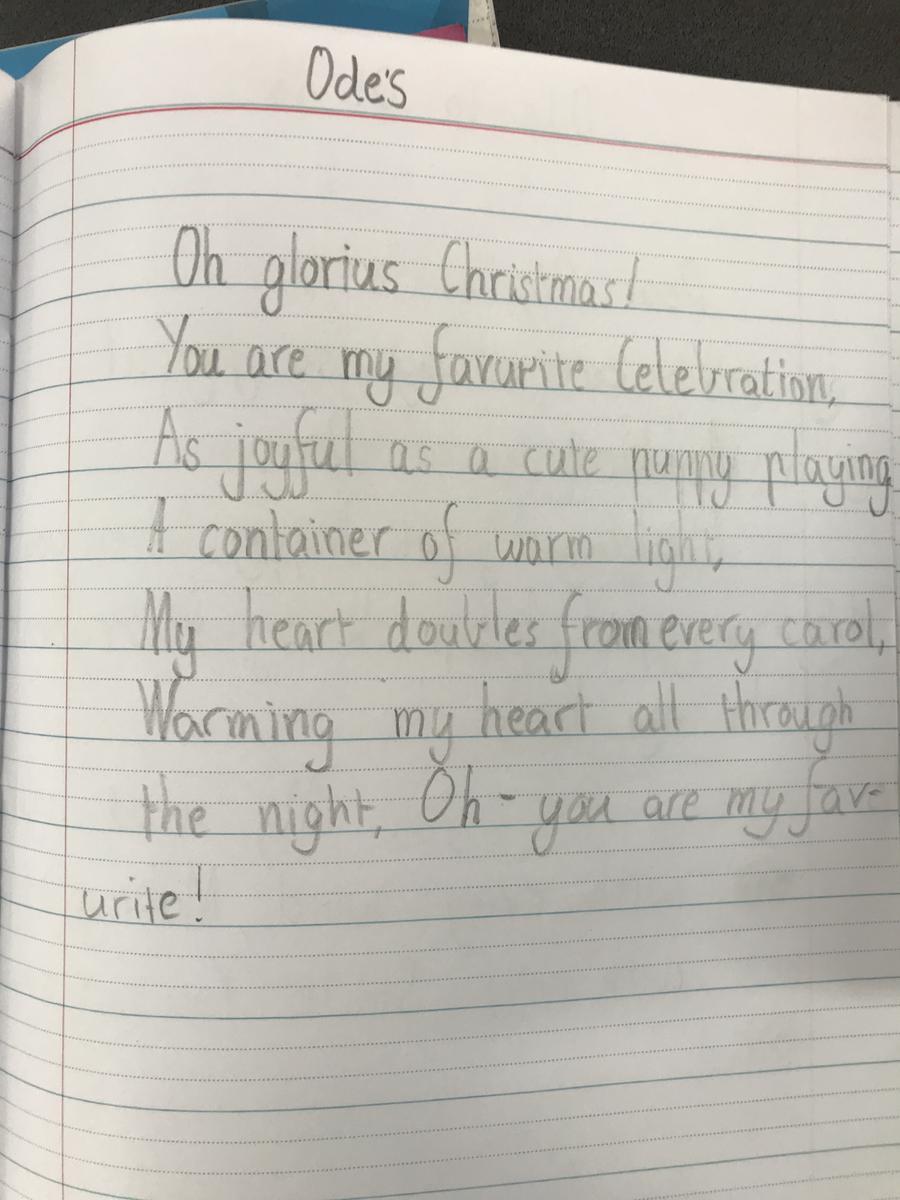 Ode's
Oh glorius Christmas!
You are my favurite Celebration,
As joyful as a cute puppy playing
A container of warm light,
My heart doubles from every carol,
Warming my heart all through
the night, Oh - you are my fav-
urite!